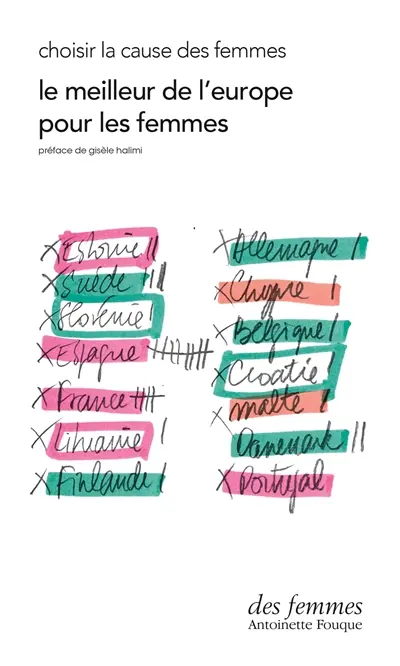 choisir la cause des femmes
le meilleur de l'europe
pour les femmes
préface de gisèle halimi
X Estonie ||
X Suède |||
X Slovénie |
X Espagne |||| |||
X France ||||
X Lithuanie |
X Finlande |
X Allemagne |
X Chypre |
X Belgique |
X Croatie |
X Malte |
Danemark ||
X Portugal
des femmes
Antoinette Fouque